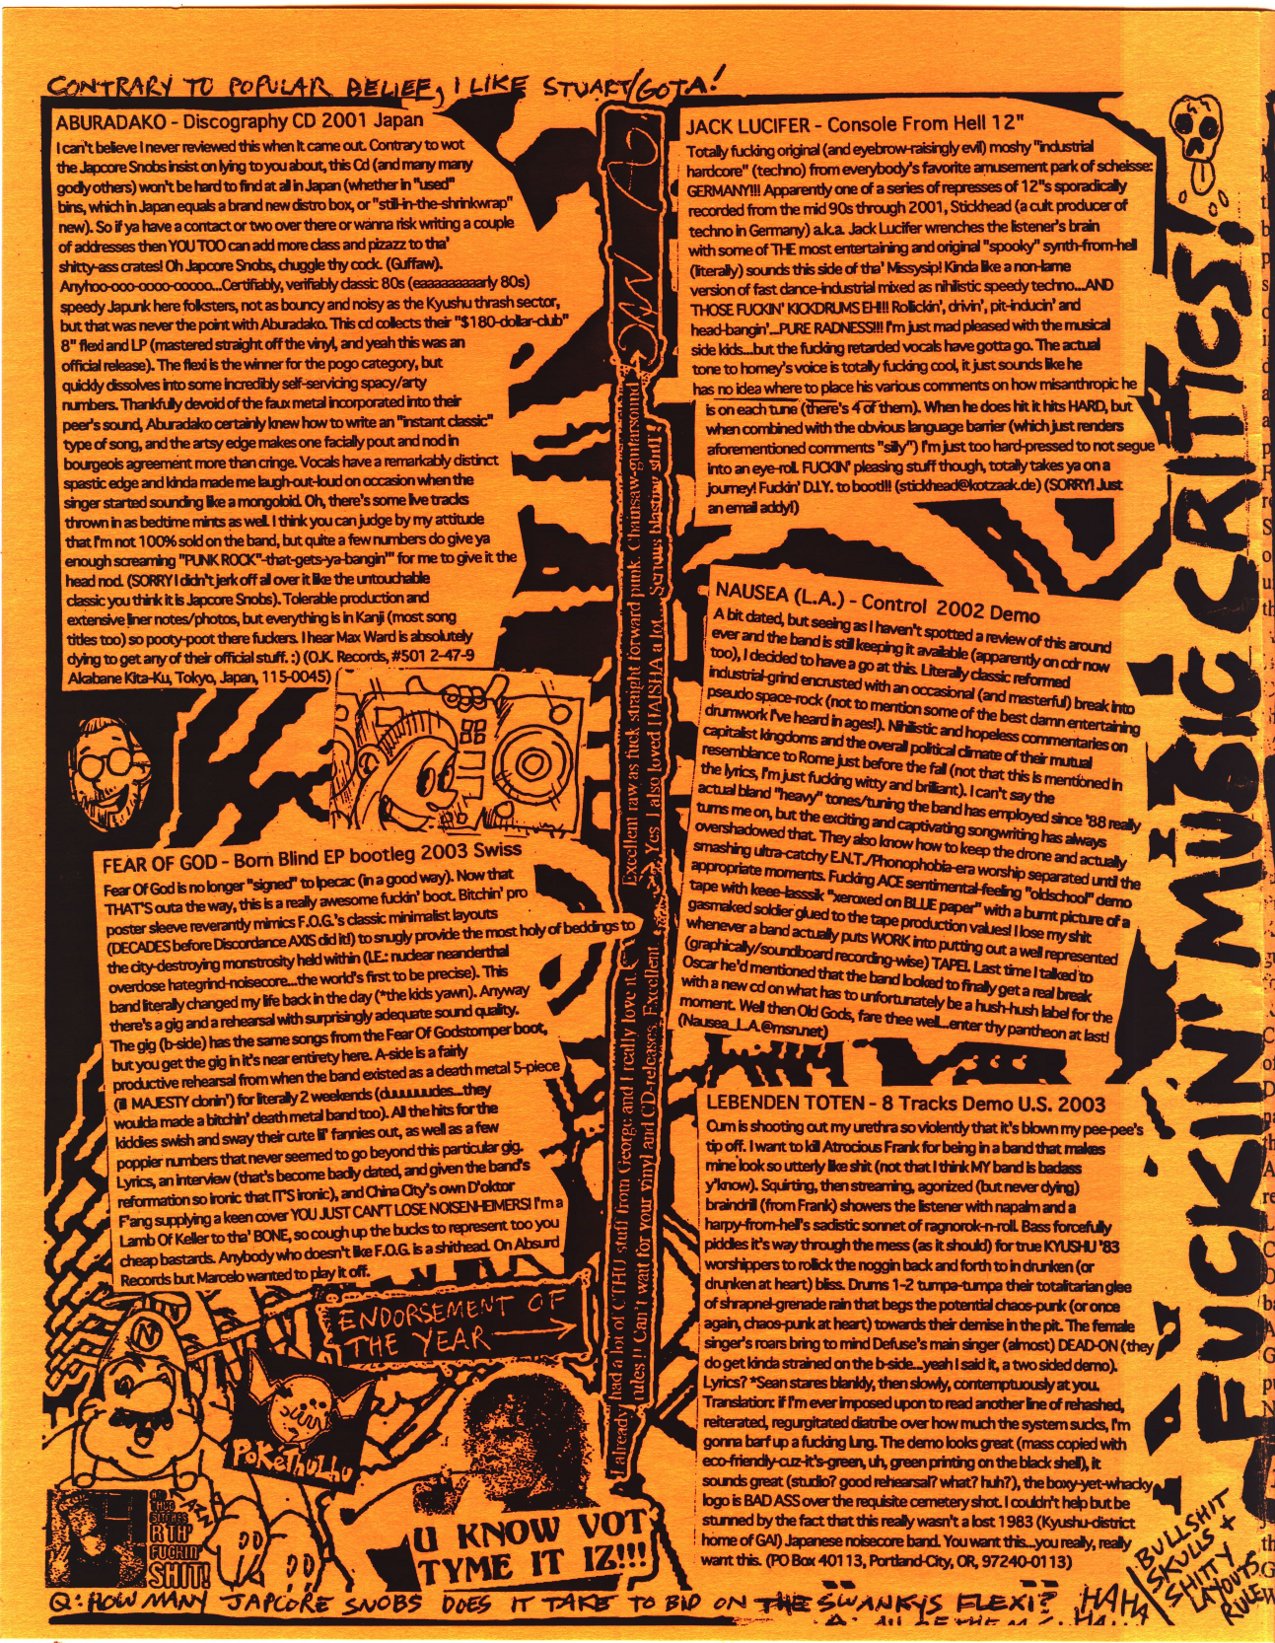 CONTRARY TO POPULAR BELIEF, I LIKE STUART/GOTA!
ABURADAKO - Discography CD 2001 Japan
I can't believe I never reviewed this when it came out. Contrary to wot
the Japcore Snobs insist on lying to you about, this Cd (and many many
godly others) won't be hard to find at all in Japan (whether in "used"
bins, which in Japan equals a brand new distro box, or "still-in-the-shrinkwrap"
new). So if ya have a contact or two over there or wanna risk writing a couple
of addresses then YOU TOO can add more class and pizazz to tha'
shitty-ass crates! Oh Japcore Snobs, chuggle thy cock. (Guffaw).
Anyhoo-ooo-oooo-ooooo...Certifiably, verifiably classic 80s (eaaaaaaaaarly 80s)
speedy Japunk here folksters, not as bouncy and noisy as the Kyushu thrash sector,
but that was never the point with Aburadako. This cd collects their "$180-dollar-club"
8" flexi and LP (mastered straight off the vinyl, and yeah this was an
official release). The flexi is the winner for the pogo category, but
quickly dissolves into some incredibly self-servicing spacy/arty
numbers. Thankfully devoid of the faux metal incorporated into their
peer's sound, Aburadako certainly knew how to write an "instant classic"
type of song, and the artsy edge makes one facially pout and nod in
bourgeois agreement more than cringe. Vocals have a remarkably distinct
spastic edge and kinda made me laugh-out-loud on occasion when the
singer started sounding like a mongoloid. Oh, there's some live tracks
thrown in as bedtime mints as well. I think you can judge by my attitude
that I'm not 100% sold on the band, but quite a few numbers do give ya
enough screaming "PUNK ROCK"-that-gets-ya-bangin'" for me to give it the
head nod. (SORRY I didn't jerk off all over it like the untouchable
classic you think it is Japcore Snobs). Tolerable production and
extensive liner notes/photos, but everything is in Kanji (most song
titles too) so pooty-poot there fuckers. I hear Max Ward is absolutely
dying to get any of their official stuff. :) (O.K. Records, #501 2-47-9
Akabane Kita-Ku, Tokyo, Japan, 115-0045)
FEAR OF GOD - Born Blind EP bootleg 2003 Swiss
Fear Of God is no longer "signed" to Ipecac (in a good way). Now that
THAT'S outa the way, this is a really awesome fuckin' boot. Bitchin' pro
poster sleeve reverantly mimics F.O.G.'s classic minimalist layouts
(DECADES before Discordance AXIS did it!) to snugly provide the most holy of beddings to
the city-destroying monstrosity held within (I.E.: nuclear neanderthal
overdose hategrind-noisecore...the world's first to be precise). This
band literally changed my life back in the day (*the kids yawn). Anyway
there's a gig and a rehearsal with surprisingly adequate sound quality.
The gig (b-side) has the same songs from the Fear Of Godstomper boot,
but you get the gig in it's near entirety here. A-side is a fairly
productive rehearsal from when the band existed as a death metal 5-piece
(ill MAJESTY clonin') for literally 2 weekends (duuuuuudes...they
woulda made a bitchin' death metal band too). All the hits for the
kiddies swish and sway their cute lil' fannies out, as well as a few
poppier numbers that never seemed to go beyond this particular gig.
Lyrics, an interview (that's become badly dated, and given the band's
reformation so ironic that IT'S ironic), and China City's own D'oktor
F'ang supplying a keen cover YOU JUST CAN'T LOSE NOISENHEIMERS! I'm a
Lamb Of Keller to tha' BONE, so cough up the bucks to represent too you
cheap bastards. Anybody who doesn't like F.O.G. is a shithead. On Absurd
Records but Marcelo wanted to play it off.
ENDORSEMENT OF
THE YEAR
PoKéThulhu
RTP
FUCKIN'
SHIT!
U KNOW VOT
TYME IT IZ!!!
I already had a lot of CTHU stuff from George and I really love it. Excellent raw as fuck straight forward punk. Chainsaw-guitarsound
rules !! Can't wait for your vinyl and CD-releases. Excellent Yes I also loved UAISHA a lot... Serious blasting stuff!
JACK LUCIFER - Console From Hell 12"
Totally fucking original (and eyebrow-raisingly evil) moshy "industrial
hardcore" (techno) from everybody's favorite amusement park of scheisse:
GERMANY!!! Apparently one of a series of represses of 12"s sporadically
recorded from the mid 90s through 2001, Stickhead (a cult producer of
techno in Germany) a.k.a. Jack Lucifer wrenches the listener's brain
with some of THE most entertaining and original "spooky" synth-from-hell
(literally) sounds this side of tha' Missysip! Kinda like a non-lame
version of fast dance-industrial mixed as nihilistic speedy techno...AND
THOSE FUCKIN' KICKDRUMS EH!!! Rollickin', drivin', pit-inducin' and
head-bangin'...PURE RADNESS!!! I'm just mad pleased with the musical
side kids...but the fucking retarded vocals have gotta go. The actual
tone to homey's voice is totally fucking cool, it just sounds like he
has no idea where to place his various comments on how misanthropic he
is on each tune (there's 4 of them). When he does hit it hits HARD, but
when combined with the obvious language barrier (which just renders
aforementioned comments "silly") I'm just too hard-pressed to not segue
into an eye-roll. FUCKIN' pleasing stuff though, totally takes ya on a
journey! Fuckin' D.I.Y. to boot!!! (stickhead@kotzaak.de) (SORRY! Just
an email addy!)
NAUSEA (L.A.) - Control 2002 Demo
A bit dated, but seeing as I haven't spotted a review of this around
ever and the band is still keeping it available (apparently on cdr now
too), I decided to have a go at this. Literally classic reformed
industrial-grind encrusted with an occasional (and masterful) break into
pseudo space-rock (not to mention some of the best damn entertaining
drumwork I've heard in ages!). Nihilistic and hopeless commentaries on
capitalist kingdoms and the overall political climate of their mutual
resemblance to Rome just before the fall (not that this is mentioned in
the lyrics, I'm just fucking witty and brilliant). I can't say the
actual bland "heavy" tones/tuning the band has employed since '88 really
turns me on, but the exciting and captivating songwriting has always
overshadowed that. They also know how to keep the drone and actually
smashing ultra-catchy E.N.T./Phonophobia-era worship separated until the
appropriate moments. Fucking ACE sentimental-feeling "oldschool" demo
tape with keee-lasssik "xeroxed on BLUE paper" with a burnt picture of a
gasmaked soldier glued to the tape production values! I lose my shit
whenever a band actually puts WORK into putting out a well represented
(graphically/soundboard recording-wise) TAPE!. Last time I talked to
Oscar he'd mentioned that the band looked to finally get a real break
with a new cd on what has to unfortunately be a hush-hush label for the
moment. Well then Old Gods, fare thee well...enter thy pantheon at last!
(Nausea_L.A.@msn.net)
LEBENDEN TOTEN - 8 Tracks Demo U.S. 2003
Cum is shooting out my urethra so violently that it's blown my pee-pee's
tip off. I want to kill Atrocious Frank for being in a band that makes
mine look so utterly like shit (not that I think MY band is badass
y'know). Squirting, then streaming, agonized (but never dying)
braindrill (from Frank) showers the listener with napalm and a
harpy-from-hell's sadistic sonnet of ragnorok-n-roll. Bass forcefully
piddles it's way through the mess (as it should) for true KYUSHU '83
worshippers to rollick the noggin back and forth to in drunken (or
drunken at heart) bliss. Drums 1-2 tumpa-tumpa their totalitarian glee
of shrapnel-grenade rain that begs the potential chaos-punk (or once
again, chaos-punk at heart) towards their demise in the pit. The female
singer's roars bring to mind Defuse's main singer (almost) DEAD-ON (they
do get kinda strained on the b-side...yeah I said it, a two sided demo).
Lyrics? *Sean stares blankly, then slowly, contemptuously at you.
Translation: if I'm ever imposed upon to read another line of rehashed,
reiterated, regurgitated diatribe over how much the system sucks, I'm
gonna barf up a fucking lung. The demo looks great (mass copied with
eco-friendly-cuz-it's-green, uh, green printing on the black shell), it
sounds great (studio? good rehearsal? what? huh?), the boxy-yet-whacky
logo is BAD ASS over the requisite cemetery shot. I couldn't help but be
stunned by the fact that this really wasn't a lost 1983 (Kyushu-district
home of GAI) Japanese noisecore band. You want this...you really, really
want this. (PO Box 40113, Portland-City, OR, 97240-0113)
FUCKIN' MUSIC CRITICS!
BULLSHIT
SKULLS +
SHITTY
LAYOUTS
RULE
Q: HOW MANY JAPCORE SNOBS DOES IT TAKE TO BID ON THE SWANKYS FLEXI? HAHA
HA...